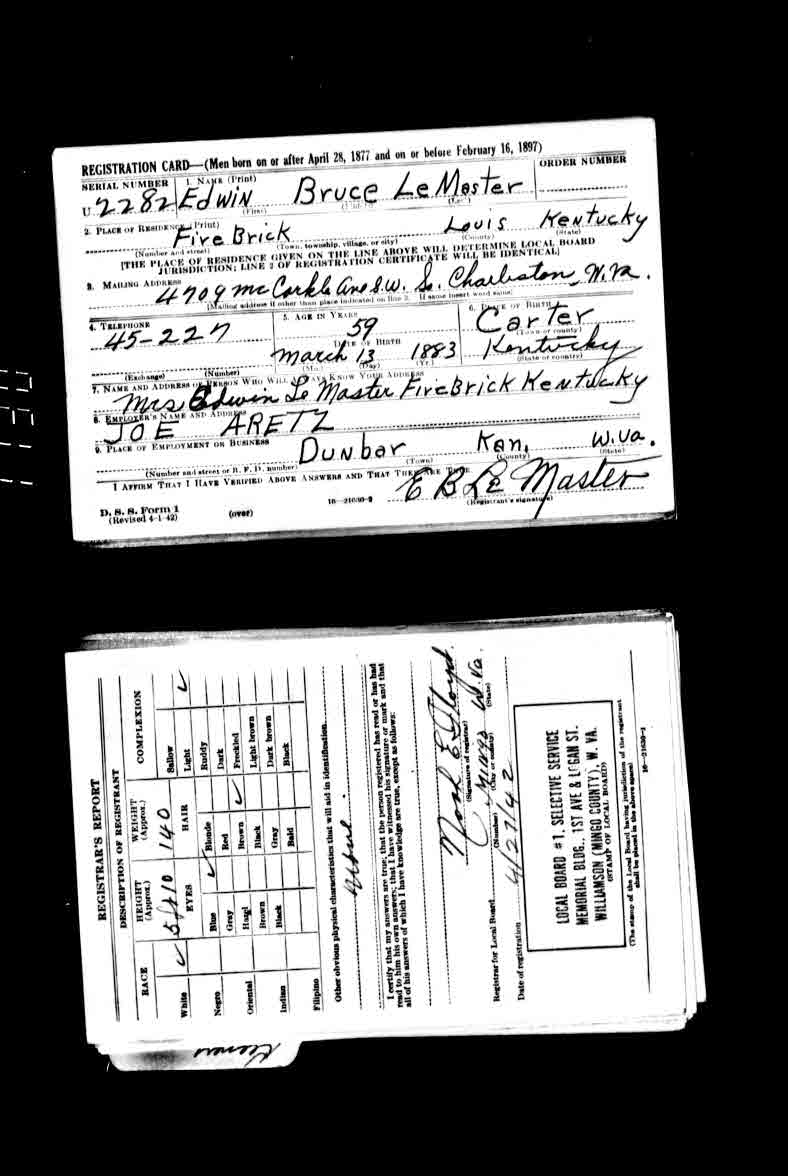 REGISTRATION CARD—(Men born on or after April 28, 1877 and on or before February 16, 1897)
SERIAL NUMBER 1. NAME (Print) ORDER NUMBER
U 2282 Edwin Bruce LeMaster
(First) (Middle) (Last)
2. PLACE OF RESIDENCE (Print)
Fire Brick Louis Kentucky
(Number and street) (Town, township, village, or city) (County) (State)
[THE PLACE OF RESIDENCE GIVEN ON THE LINE ABOVE WILL DETERMINE LOCAL BOARD
JURISDICTION; LINE 2 OF REGISTRATION CERTIFICATE WILL BE IDENTICAL]
3. MAILING ADDRESS
4709 McCorkle Ave S.W. So. Charleston, W. Va.
[Mailing address if other than place indicated on line 2. If same insert word same]
4. TELEPHONE 5. AGE IN YEARS 6. PLACE OF BIRTH
45-227 59 Carter
DATE OF BIRTH (Town or county)
March 13 1883 Kentucky
(Exchange) (Number) (Mo.) (Day) (Yr.) (State or country)
7. NAME AND ADDRESS OF PERSON WHO WILL ALWAYS KNOW YOUR ADDRESS
Mrs Edwin Le Master FireBrick Kentucky
8. EMPLOYER'S NAME AND ADDRESS
JOE ARETZ
9. PLACE OF EMPLOYMENT OR BUSINESS
Dunbar Kan. W.Va.
(Number and street or R. F. D. number) (Town) (County) (State)
I AFFIRM THAT I HAVE VERIFIED ABOVE ANSWERS AND THAT THEY ARE TRUE.
E B Le Master
D. S. S. Form 1
(Revised 4-1-42) (over) 16—21630-2 (Registrant's signature)
REGISTRAR'S REPORT
DESCRIPTION OF REGISTRANT
RACE HEIGHT (Approx.) WEIGHT (Approx.) COMPLEXION
5 ft 10 140
White ✓ EYES HAIR Sallow
Light ✓
Negro Blue ✓ Blonde Ruddy
Gray Red Dark
Oriental Hazel Brown ✓ Freckled
Brown Black Light brown
Indian Black Gray Dark brown
Bald Black
Filipino
Other obvious physical characteristics that will aid in identification
I certify that my answers are true; that the person registered has read or has had
read to him his own answers; that I have witnessed his signature or mark and that
all of his answers of which I have knowledge are true, except as follows:
(Signature of registrar)
Registrar for Local Board Mingo W. Va.
(Number) (City or county) (State)
Date of registration 4/27/42
LOCAL BOARD #1, SELECTIVE SERVICE
MEMORIAL BLDG., 1ST AVE & LOGAN ST.
WILLIAMSON (MINGO COUNTY), W. VA.
(STAMP OF LOCAL BOARD)
(The stamp of the Local Board having jurisdiction of the registrant
shall be placed in the above space)
16—21630-1